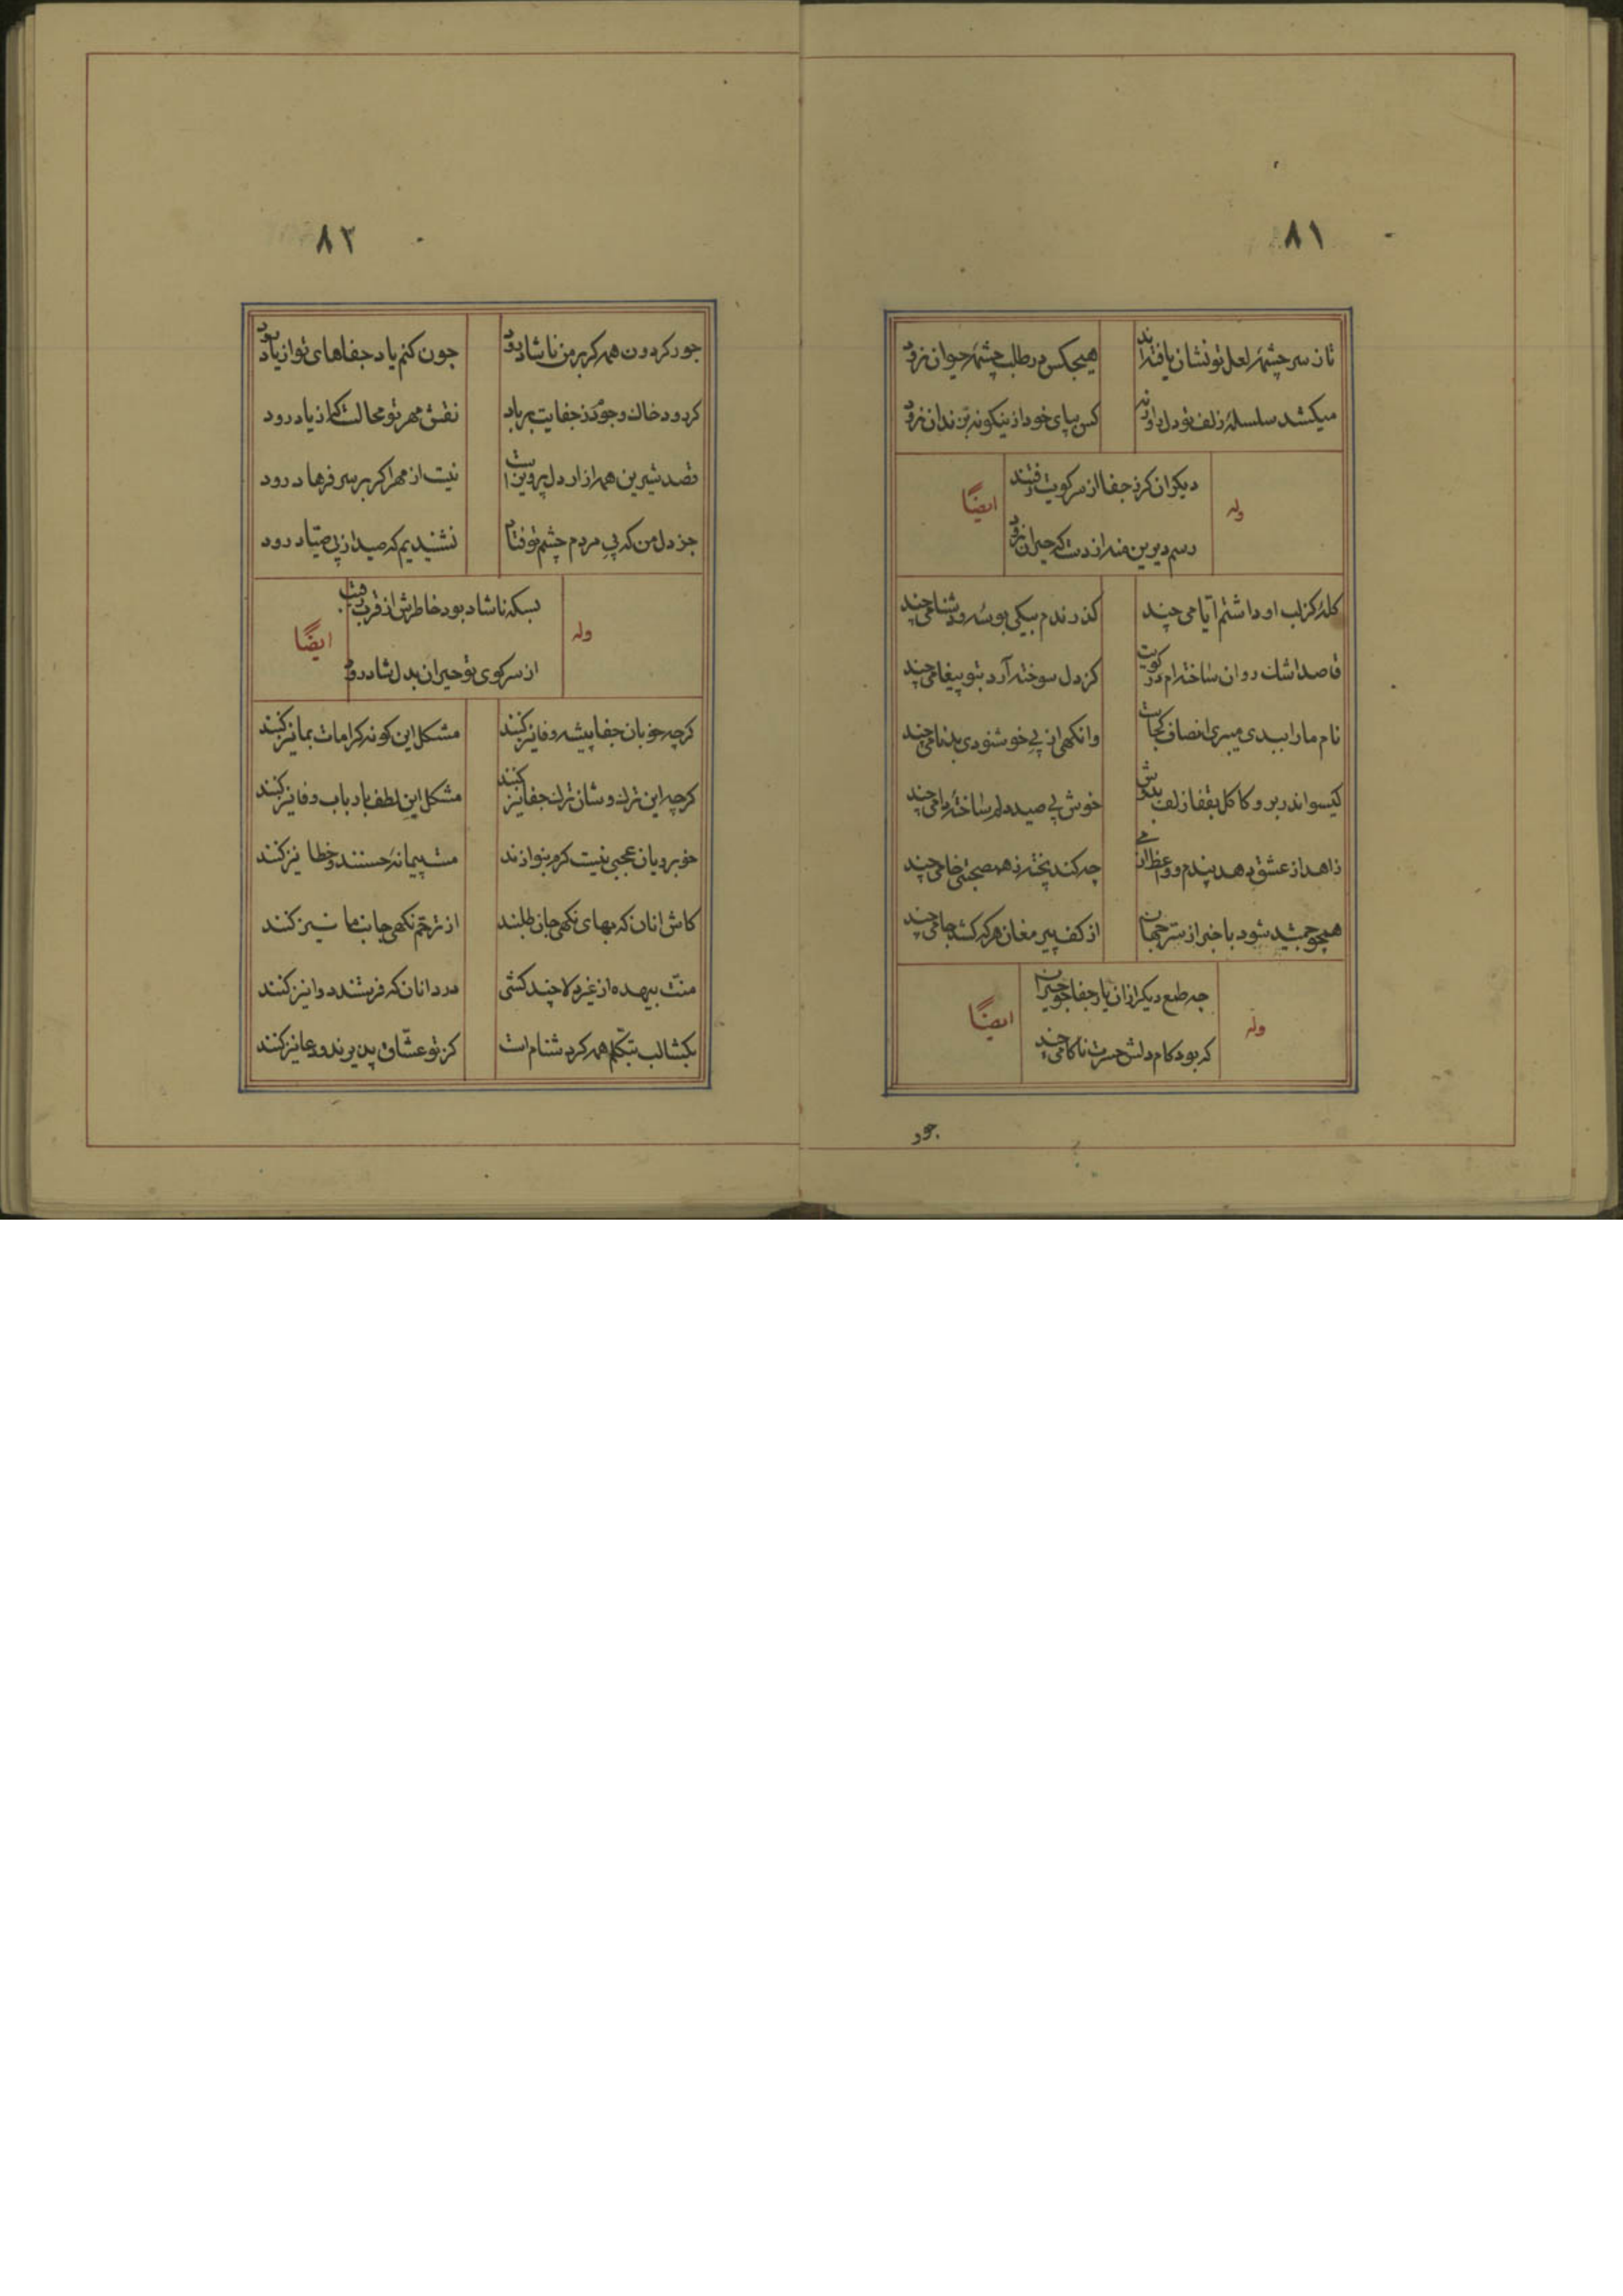 ۸۱
تا ز سر چشمهٔ لعل تو نشان یافته‌اند
هیچکس در طلب چشمهٔ حیوان نرود
میکشد سلسلهٔ زلف تو دل را ورنه
کس بپای خود ازینکونه بزندان نرود
دیکران کر ز جفا از سر کویت رفتند
وله
ایضًا
رسم دیرین منه از دست که حیران نرود
کلهٔ کز لب او داشتم ایامی چند
کذراندم بیکی بوسه و دشنامی چند
قاصد اشک روان ساخته‌ام در کویت
کز دل سوخته آرد بتو پیغامی چند
نام ما را ببدی میبری انصاف کجاست
وانکهی از پی خوشنودی بدنامی چند
کیسو اندر بر و کاکل بقفا زلف بدوش
خوش پی صید دلم ساختهٔ دامی چند
زاهد از عشق دهد پندم و واعظ از می
چه کند پخته ز هم صحبتی خامی چند
همچو جمشید شود با خبر از سرّ جهان
از کف پیر مغان هر که کشد جامی چند
چه طمع دیکر ازان یار جفا جو حیران
وله
ایضًا
که بود کام دلش حسرت ناکامی چند
جور
۸۲
جور کردون همه کر بر من ناشاد رود
چون کنم یاد جفاهای تو از یاد رود
کر دود خاک وجودم ز جفایت بر باد
نقش مهر تو محالست که از یاد رود
قصد شیرین همه ازار دل پرویز است
نیست از مهر اکر بر سر فرهاد رود
جز دل من که پی مردم چشم تو فتاد
نشنیدیم که صید از پی صیّاد رود
بسکه ناشاد بود خاطرش از قرب رقیب
وله
ایضًا
از سر کوی تو حیران بدل شاد رود
کرچه خوبان جفا پیشه وفا نیز کنند
مشکل این کونه کرامات بما نیز کنند
کرچه این ترک وشان ترک جفا نیز کنند
مشکل این لطف بارباب وفا نیز کنند
خوبرویان عجبی نیست کرم بنوازند
مست پیمانهٔ حسنند و خطا نیز کنند
کاش انان که بهای نکهی جان طلبند
از ترحّم نکهی جانب ما نیز کنند
منّت بیهده از غیر دلا چند کشی
درد انان که فرستند دوا نیز کنند
بکشا لب بتکلّم همه کر دشنام است
کز تو عشّاق پذیرند و دعا نیز کنند